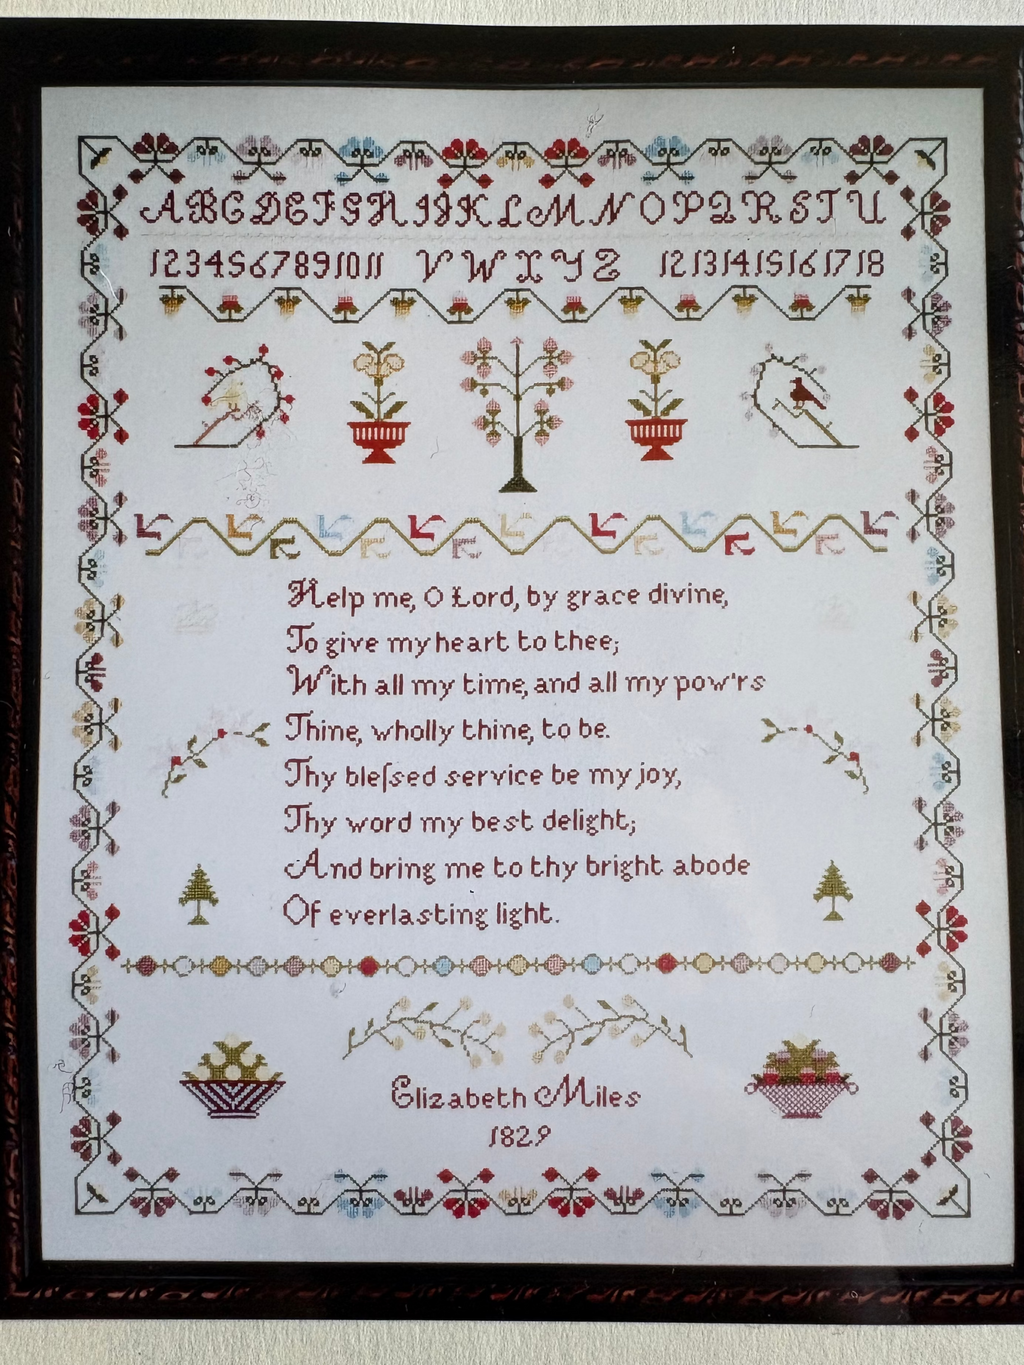 ABCDEFGHIJKLMNOPQRSTU
1234567891011 VWXYZ 12131415161718
Help me, O Lord, by grace divine,
To give my heart to thee;
With all my time, and all my pow'rs
Thine, wholly thine, to be.
Thy bleſsed service be my joy,
Thy word my best delight;
And bring me to thy bright abode
Of everlasting light.
Elizabeth Miles
1829